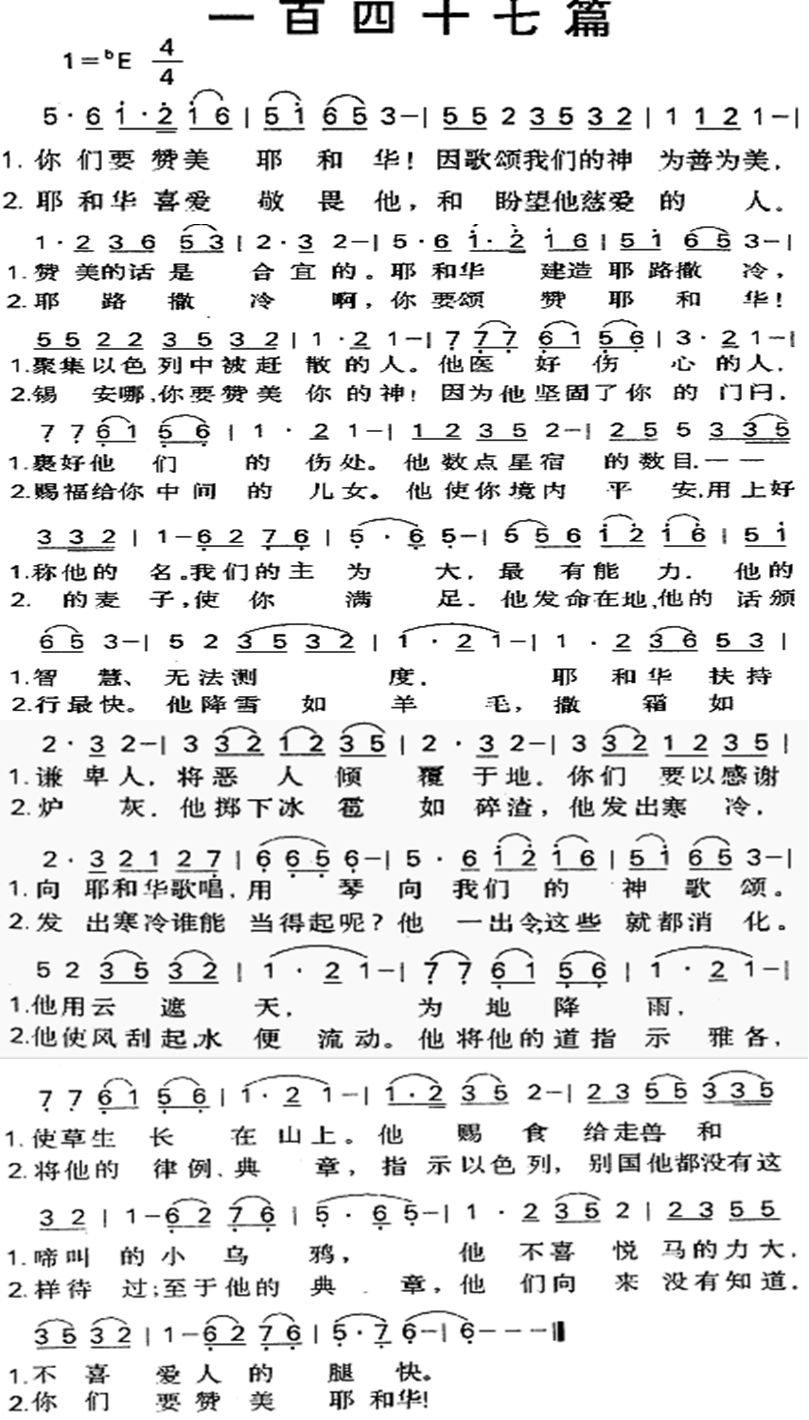 一百四十七篇
1=♭E 4/4
5· 6 1·2 1 6 | 5 1 6 5 3－| 5 5 2 3 5 3 2 | 1 1 2 1－|
1.你们要赞美耶和华!因歌颂我们的神为善为美,
2.耶和华喜爱敬畏他,和盼望他慈爱的人。
1· 2 3 6 5 3 | 2· 3 2－| 5· 6 1·2 1 6 | 5 1 6 5 3－|
1.赞美的话是合宜的。耶和华建造耶路撒冷,
2.耶路撒冷啊,你要颂赞耶和华!
5 5 2 2 3 5 3 2 | 1·2 1－| 7 7 7 6 1 5 6 | 3· 2 1－|
1.聚集以色列中被赶散的人。他医好伤心的人,
2.锡安哪,你要赞美你的神!因为他坚固了你的门闩,
7 7 6 1 5 6 | 1· 2 1－| 1 2 3 5 2－| 2 5 5 3 3 5
1.裹好他们的伤处。他数点星宿的数目,一一
2.赐福给你中间的儿女。他使你境内平安,用上好
3 3 2 | 1－6 2 7 6 | 5· 6 5－| 5 5 6 1 2 1 6 | 5 1
1.称他的名。我们的主为大,最有能力.他的
2.的麦子,使你满足.他发命在地,他的话颁
6 5 3－| 5 2 3 5 3 2 | 1· 2 1－| 1· 2 3 6 5 3 |
1.智慧、无法测度.耶和华扶持
2.行最快。他降雪如羊毛,撒霜如
2· 3 2－| 3 3 2 1 2 3 5 | 2· 3 2－| 3 3 2 1 2 3 5 |
1.谦卑人.将恶人倾覆于地.你们要以感谢
2.炉灰.他掷下冰雹如碎渣,他发出寒冷.
2· 3 2 1 2 7 | 6 6 5 6－| 5· 6 1 2 1 6 | 5 1 6 5 3－|
1.向耶和华歌唱,用琴向我们的神歌颂。
2.发出寒冷谁能当得起呢?他一出令,这些就都消化。
5 2 3 5 3 2 | 1· 2 1－| 7 7 6 1 5 6 | 1· 2 1－|
1.他用云遮天,为地降雨,
2.他使风刮起,水便流动。他将他的道指示雅各,
7 7 6 1 5 6 | 1·2 1－| 1·2 3 5 2－| 2 3 5 5 3 3 5
1.使草生长在山上。他赐食给走兽和
2.将他的律例、典章,指示以色列,别国他都没有这
3 2 | 1－6 2 7 6 | 5· 6 5－| 1· 2 3 5 2 | 2 3 5 5
1.啼叫的小乌鸦,他不喜悦马的力大,
2.样待过;至于他的典章,他们向来没有知道.
3 5 3 2 | 1－6 2 7 6 | 5·7 6－| 6－－－‖
1.不喜爱人的腿快。
2.你们要赞美耶和华!